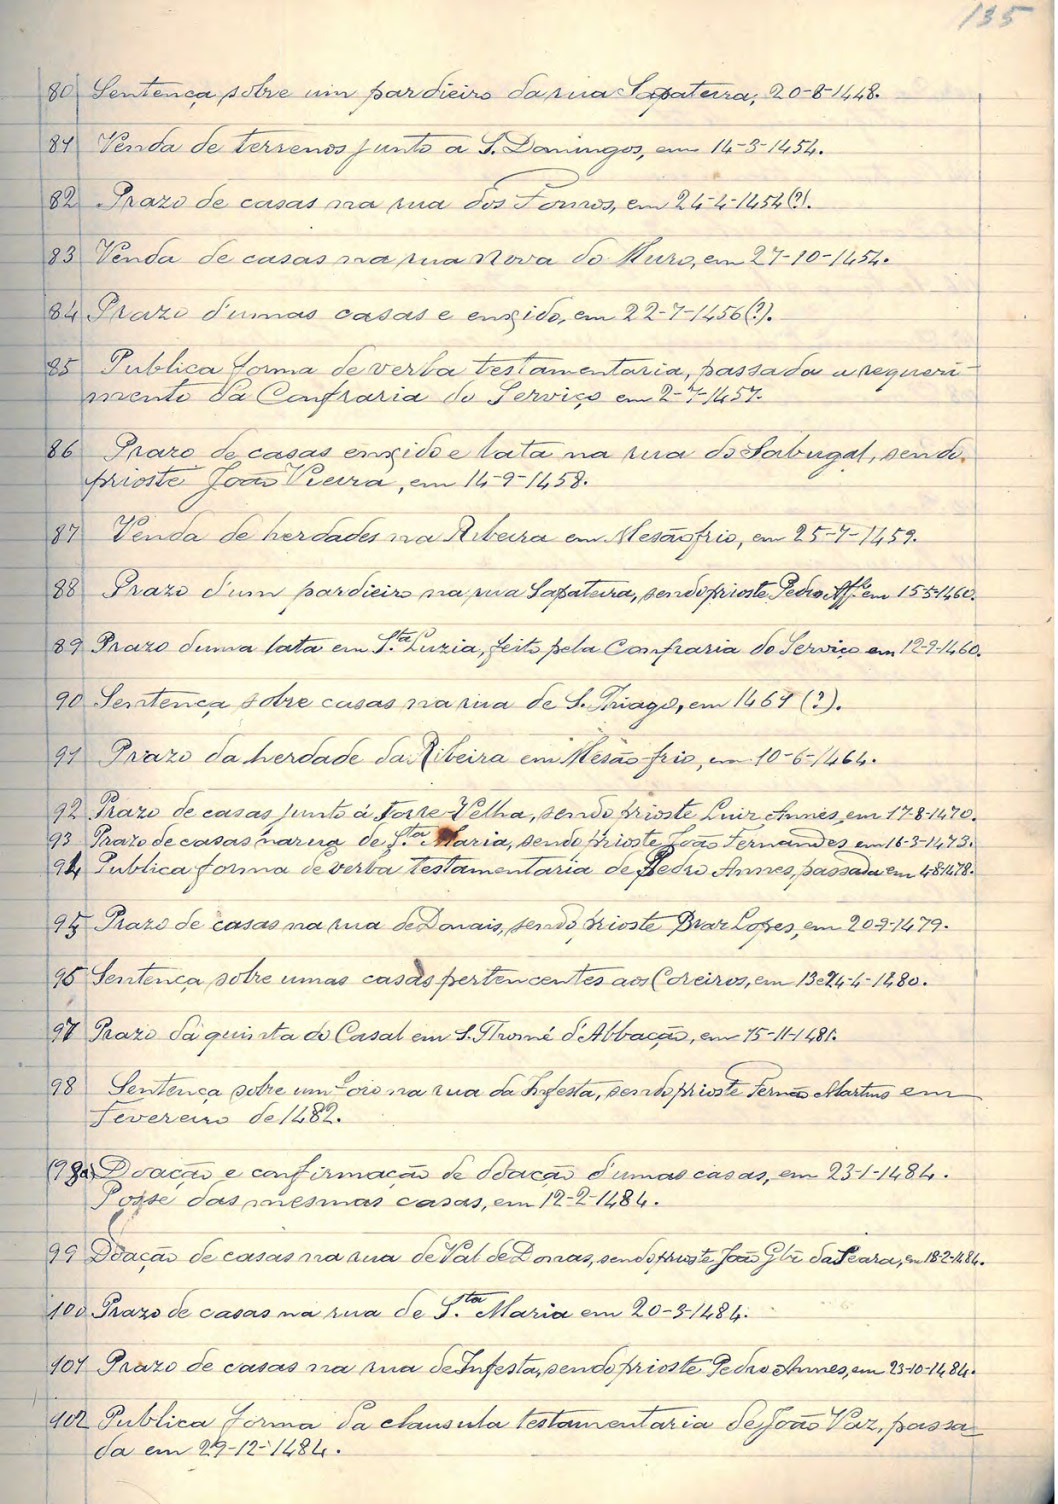 135
80 Sentença sobre um pardieiro da rua Sapateira, 20-8-1448.
81 Venda de terrenos junto a S. Domingos, em 14-3-1454.
82 Prazo de casas na rua dos Fornos, em 24-4-1454(?).
83 Venda de casas na rua Nova do Muro, em 27-10-1454.
84 Prazo d'umas casas e enxido, em 22-7-1456(?).
85 Publica forma de verba testamentaria, passada a requeri-
mento da Confraria do Serviço em 2-7-1457.
86 Prazo de casas enxido e lata na rua do Sabugal, sendo
prioste João Vieira, em 14-9-1458.
87 Venda de herdades na Ribeira em Mesãofrio, em 25-7-1459.
88 Prazo d'um pardieiro na rua Sapateira, sendo prioste Pedro Aff.º em 15-5-1460.
89 Prazo duma lata em S.ta Luzia, feito pela Confraria do Serviço em 12-9-1460.
90 Sentença sobre casas na rua de S. Thiago, em 1461 (?).
91 Prazo da herdade da Ribeira em Mesão frio, em 10-6-1464.
92 Prazo de casas junto á Torre Velha, sendo prioste Luiz Annes, em 17-8-1470.
93 Prazo de casas na rua de S.ta Maria, sendo prioste João Fernandes em 16-3-1473.
94 Publica forma de verba testamentaria de Pedro Annes, passada em 4-8-1478.
95 Prazo de casas na rua de Donais, sendo prioste Braz Lopes, em 20-9-1479.
96 Sentença sobre umas casas pertencentes aos Coreiros, em 13 e 24-4-1480.
97 Prazo da quinta do Casal em S. Thomé d'Abbação, em 15-11-1481.
98 Sentença sobre um foro na rua da Infesta, sendo prioste Fernão Martins em
Fevereiro de 1482.
(98a) Doação e confirmação de doação d'umas casas, em 23-1-1484.
Posse das mesmas casas, em 12-2-1484.
99 Doação de casas na rua de Val de Donas, sendo prioste João Glz da Seara, em 18-2-1484.
100 Prazo de casas na rua de S.ta Maria em 20-3-1484.
101 Prazo de casas na rua de Infesta, sendo prioste Pedro Annes, em 23-10-1484.
102 Publica forma da clausula testamentaria de João Vaz, passa-
da em 29-12-1484.